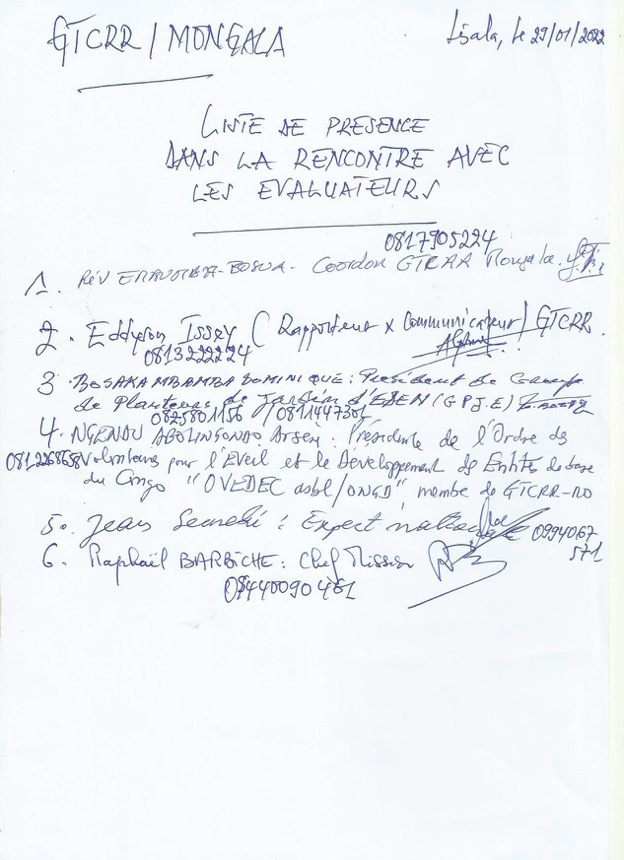 GTCRR / MONGALA
Lisala, le 29/01/2022
LISTE DE PRESENCE
DANS LA RENCONTRE AVEC
LES EVALUATEURS
0817905224
1. Rév BOSUA - Coordon Mongala
2. Eddyson Issey ( Rapporteur x Communicateur ) GTCRR
0813222224
3. BOSAKA MBAMBA DOMINIQUE : Président de Groupe
de Planteurs de Jardin d'EDEN (G P J.E)
0825801156 / 0811447301
4. NGENDU ABOLINGONDO Arsen : Présidente de l'Ordre des
0812268658 Volontaires pour l'Eveil et le Développement des Entités de base
du Congo " OVEDEC asbl / ONGD" membre de GTCRR-RD
5. Jean : Expert 0994067
571
6. Raphaël BARBICHE : Chef Mission
461